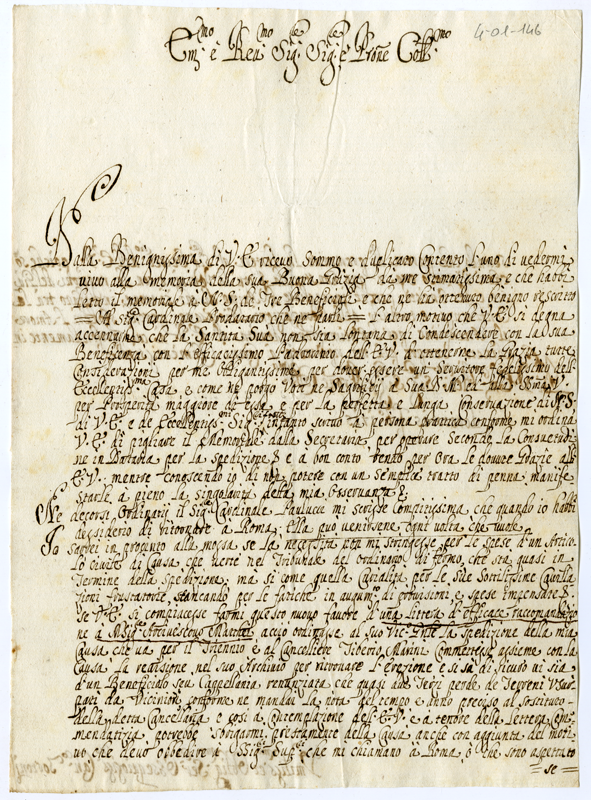 4-01-146
Em.mo e Reu.mo Sig.r Sig.re e Prone Coll.mo
Dalla Benignissima di V. E. riceuo sommo e duplicato Contento l'uno di uedermi
uiuo alla memoria della sua Buona Grazia da me stimatissima e che habbi
letto il memoriale a N. S. de Tre Beneficij e che ne ha ottenuto benigno rescritto
= Al Sig.r Cardinale Prodatario che ne parli = l'altro motiuo che V. E. si degna
accennarmi che la Santità Sua non sia lontana di Condescendere con la sua
Beneficenza con l'efficacissimo Padrocinio dell'E. V. d'ottenerne la Grazia tutte
Considerazioni per me obligantissime per douer essere un seruitore fedelissimo dell'
Eccellentis.ma Casa, e come ne porgo Voti ne Sagrificij a Sua D. M.
per Prosperità maggiore di essa, e per la perfetta e lunga Conseruazione di N. S.
di V. E. e de Eccellentis.mi Sig.ri intanto scriuo a persona pratica conforme mi ordina
V. E. di pigliare il Memoriale dalla Secretaria, per operare secondo la Consuetudi-
ne in Dataria per la Spedizione, e a bon conto rendo per ora le douute Grazie all'
E. V. mentre conoscendo io di non potere con un semplice tratto di penna manife-
starle a pieno la singolarità della mia osseruanza.
Ne decorsi Ordinarij il Sig.r Cardinale Paulucci mi scrisse compitissima che quando io habbi
desiderio di ritornare a Roma, Ella può uenirsene ogni uolta che uuole.
Io sarei in pronto alla mossa se la necessità non mi stringesse per le spese d'un Artico-
lo ciuile di Causa, che uerte nel Tribunale dell'ordinario di fermo, che sta quasi in
Termine della spedizione; ma si come quella Curialità per le sue sottilissime Cauilla-
zioni frustatorie, stancando per le fatiche in augum.o di prouisioni e spese impensate.
Se V. E. si compiacesse farmi questo nuouo fauore d'una lettera d'efficace raccomandazio-
ne a Mons.r Arciuescouo, acciò ordinasse al suo Vic.o Gnle la spedizione della mia
Causa che ua per il Triennio e al Cancelliere Tiberio Marini Commettesse assieme con la
Causa la reuisione nel suo Archiuio per ritrouare l'erezione e si sa di sicuro ui sia
d'un Beneficiolo seu Cappellania renunziata, che quasi due Terzi perde de Terreni Usur-
pati da Vicinori conforme ne mandai la nota del tempo e anno preciso al sostituto
della detta Cancellaria e così a Contemplazione dell'E. V. e a tenore della lettera Com-
mendatizia potrebbe sbrigarmi prestamente della Causa anche con aggiunta del moti-
uo che deuo obbedire a Sig.ri Sup.ri che mi chiamano a Roma, ò che sono aspettato
= se =